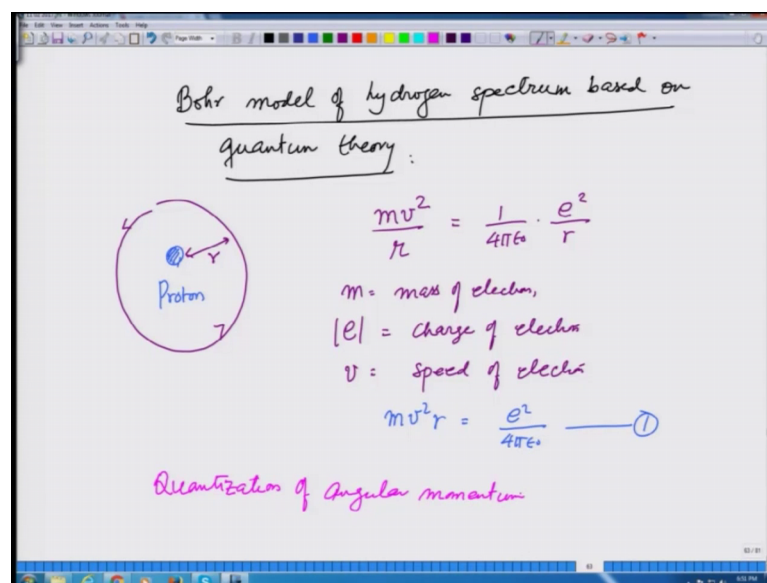 Edit View Insert Actions Tools Help
Page Width
Bohr model of hydrogen spectrum based on
quantum theory :
r
Proton
mv²/r = 1/4πε₀ · e²/r
m = mass of electron,
|e| = charge of electron
v = speed of electron
mv²r = e²/4πε₀ ——— ①
Quantization of angular momentum
63
6:51 PM